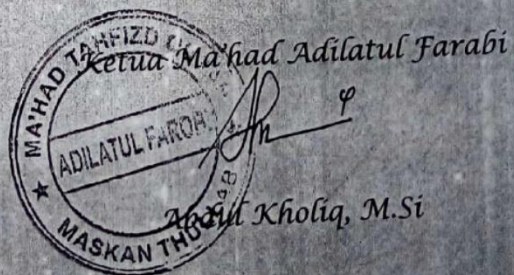 Ketua Ma'had Adilatul Farabi
MA'HAD TAHFIZD
ADILATUL FAROB
MASKAN
Abdul Kholiq, M.Si